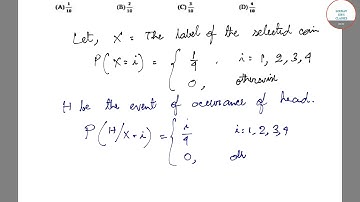 (A) 1/10 (B) 2/10 (C) 3/10 (D) 4/10
Let, X = The label of the selected coin
P(X = i) = { 1/4 , i = 1, 2, 3, 4
0, otherwise
H be the event of occurance of head.
P(H/X=i) = { i/4 i = 1, 2, 3, 4
0, oth